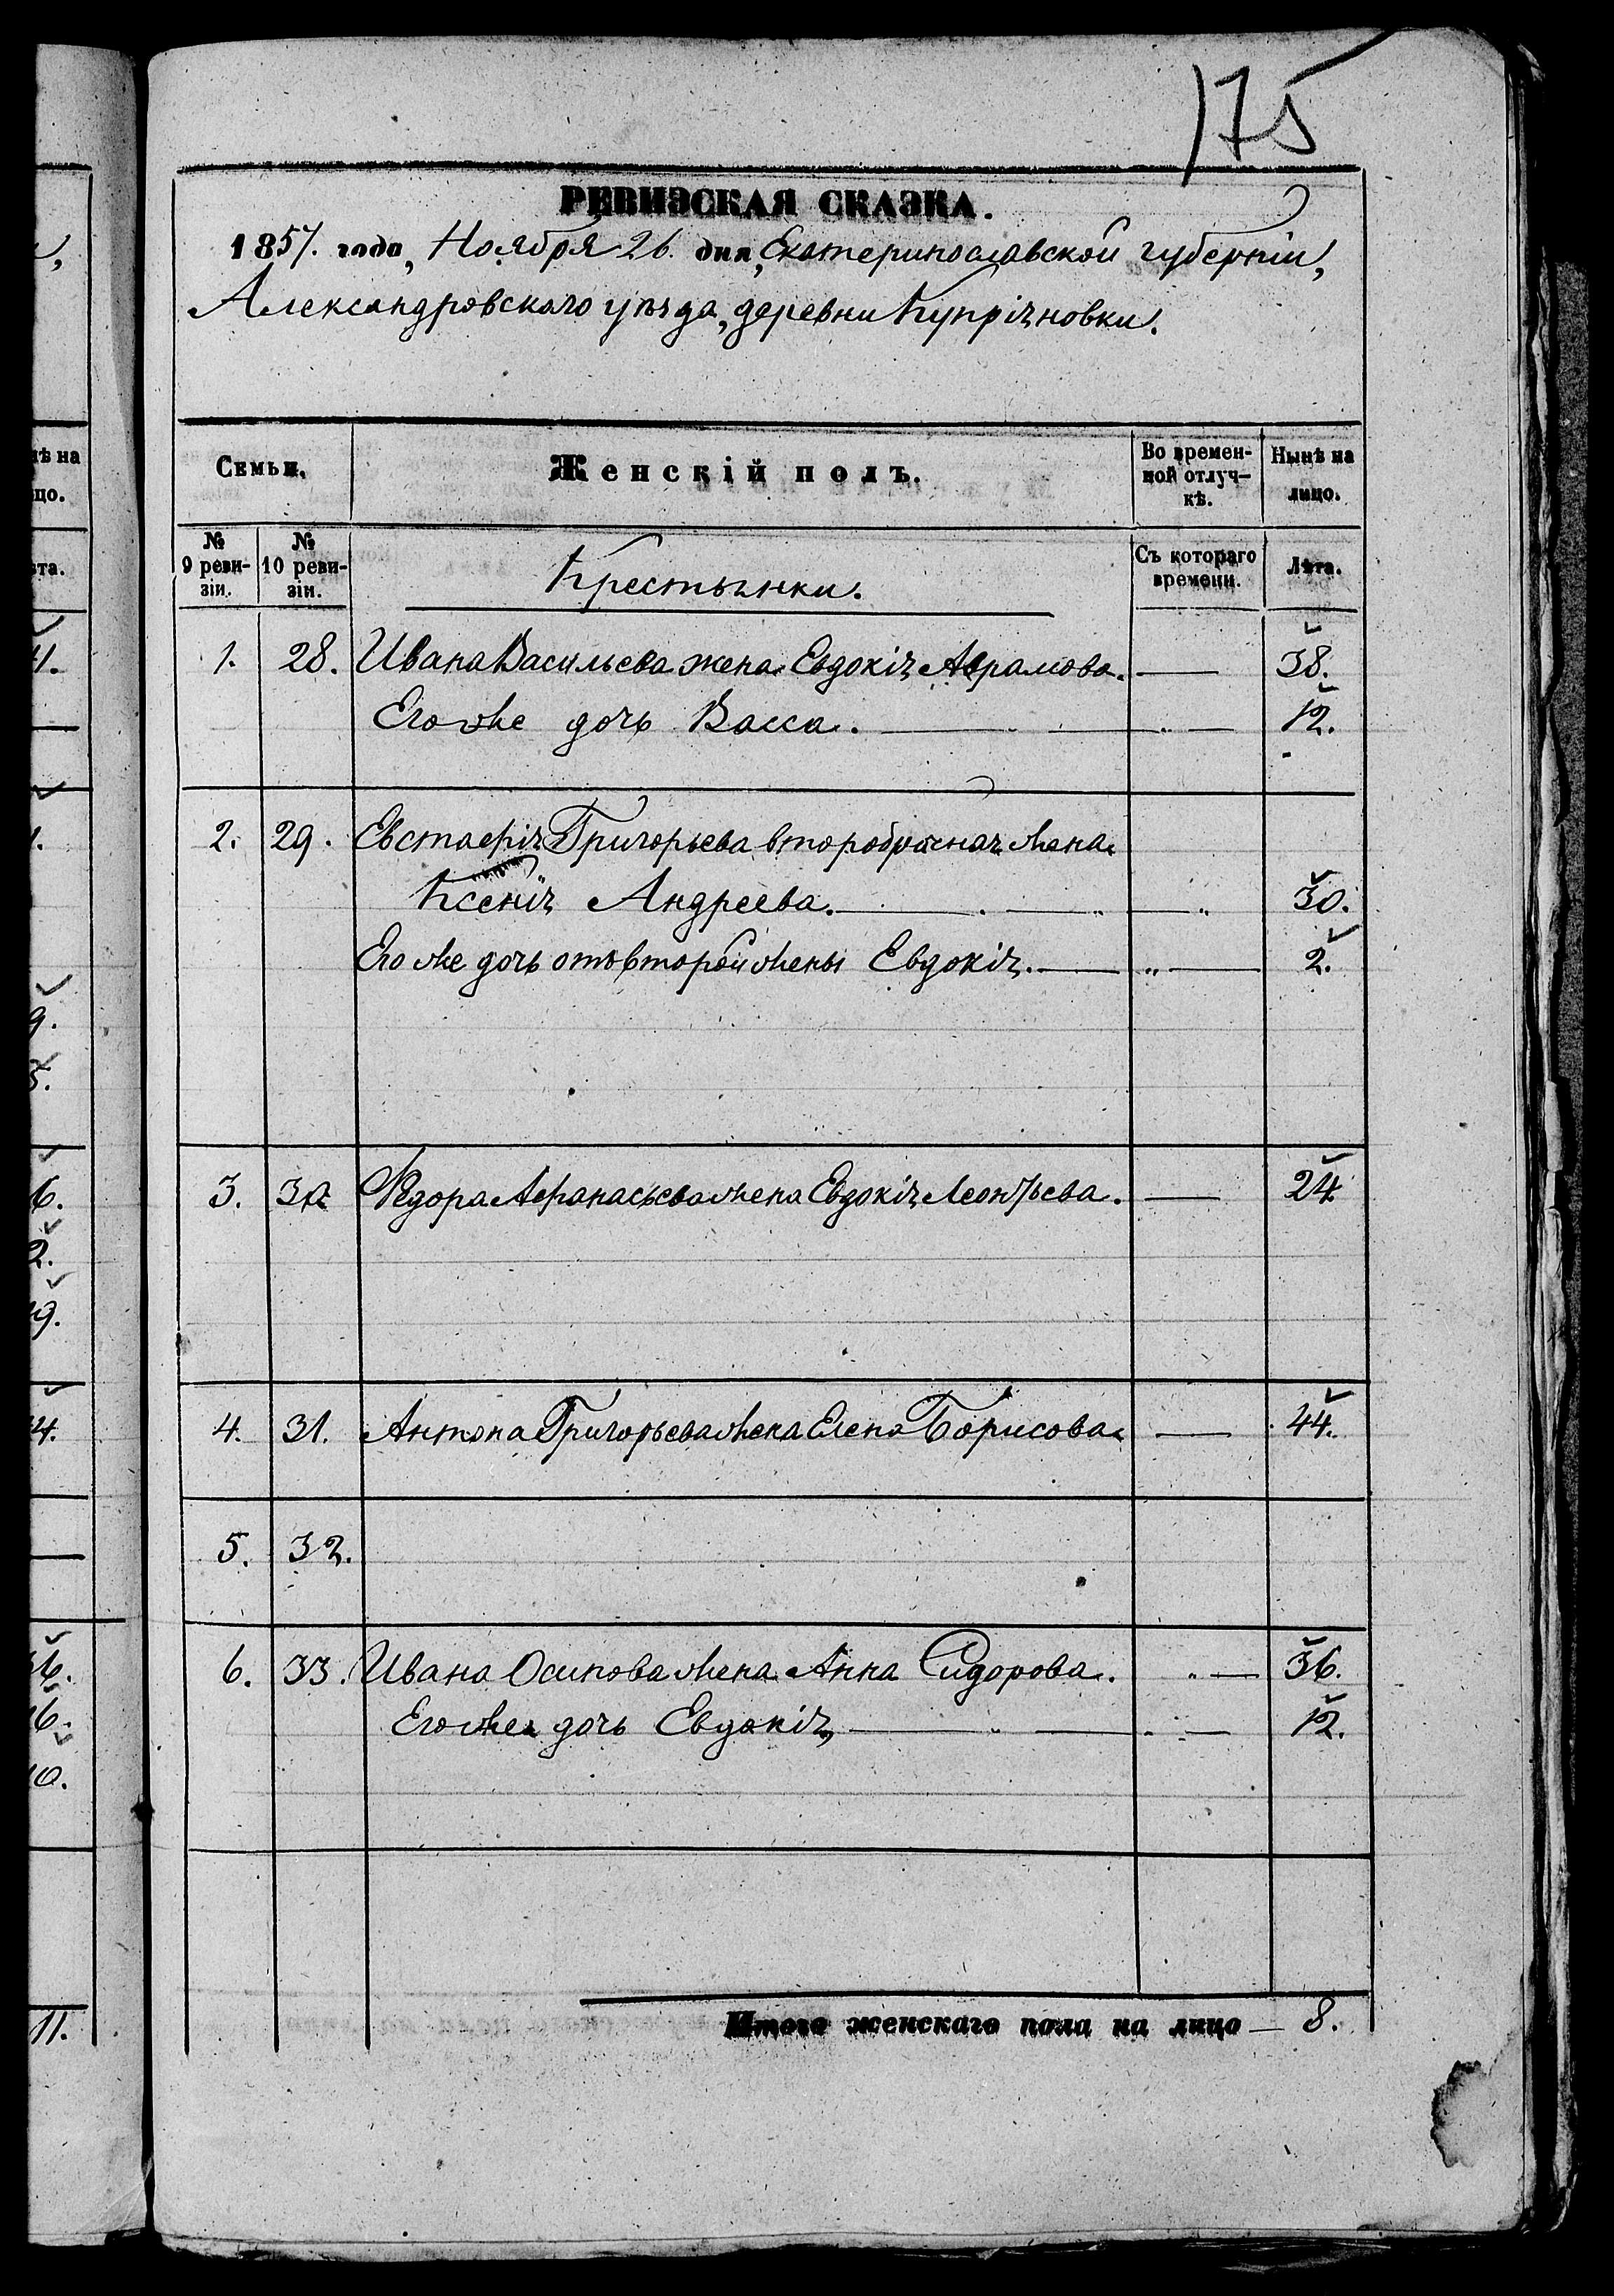 175
РЕВИЗСКАЯ СКАЗКА.
1857. года, Ноября 26. дня, Екатеринославской губерніи,
Александровскаго уѣзда, деревни Купріяновки.
Семьи. Женскій полъ. Во времен-ной отлуч-кѣ. Нынѣ на лицо.
№ 9 реви-зіи. № 10 реви-зіи. Крестьянки. Съ котораго времени. Лѣта.
1. 28. Ивана Васильева жена Евдокія Аврамова. — 38.
Его же дочь Васса. — " — 12.
2. 29. Евстафія Григорьева второбрачная жена
Ксенія Андреева. — " — " 30.
Его же дочь отъ второй жены Евдокія. — " — 2.
3. 30 Федора Афанасьева жена Евдокія Леонтьева. — 24
4. 31. Антона Григорьева жена Елена Борисова. — 44.
5. 32.
6. 33. Ивана Осипова жена Анна Сидорова. " — 36.
Его же дочь Евдокія, — " — " — 12.
Итого женскаго пола на лицо — 8.
нѣ на
цо.
ѣта.
4.
9.
5.
6.
2.
9.
4.
6.
6.
10.
11.